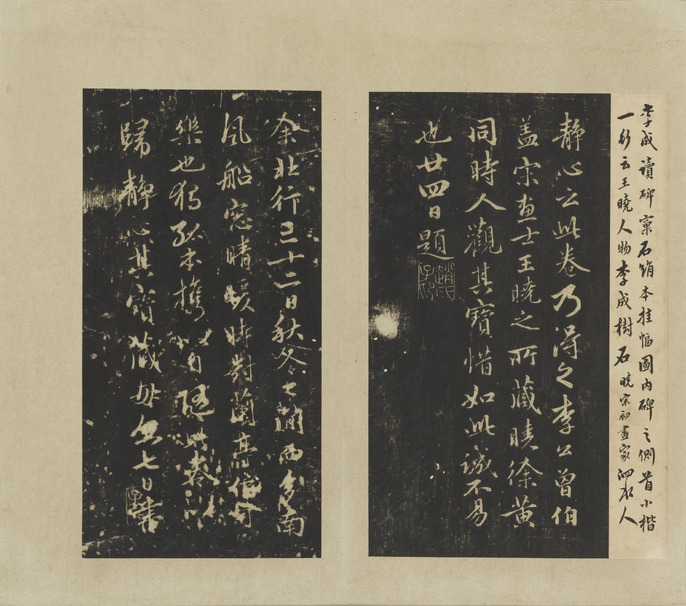 李成讀碑窠石絹本挂幅國內碑之側首小楷
一行云王曉人物李成樹石曉宋初畫家泗州人
靜心云此卷乃得之李公曾伯
盖宋画士王曉之所藏曉徐黃
同時人觀其寶惜如此誠不易
也廿四日題
趙氏子昂
余北行三十二日秋冬之間而多南
風船窓晴暖時對蘭亭信可
樂也獨孤本攜以自隨此卷以
歸靜心其寶藏毋忽七日書